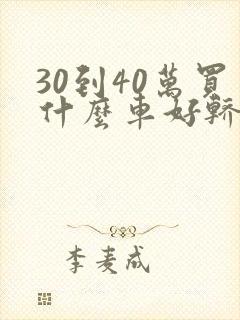 30到40萬買
什麼車好轎
李麦成